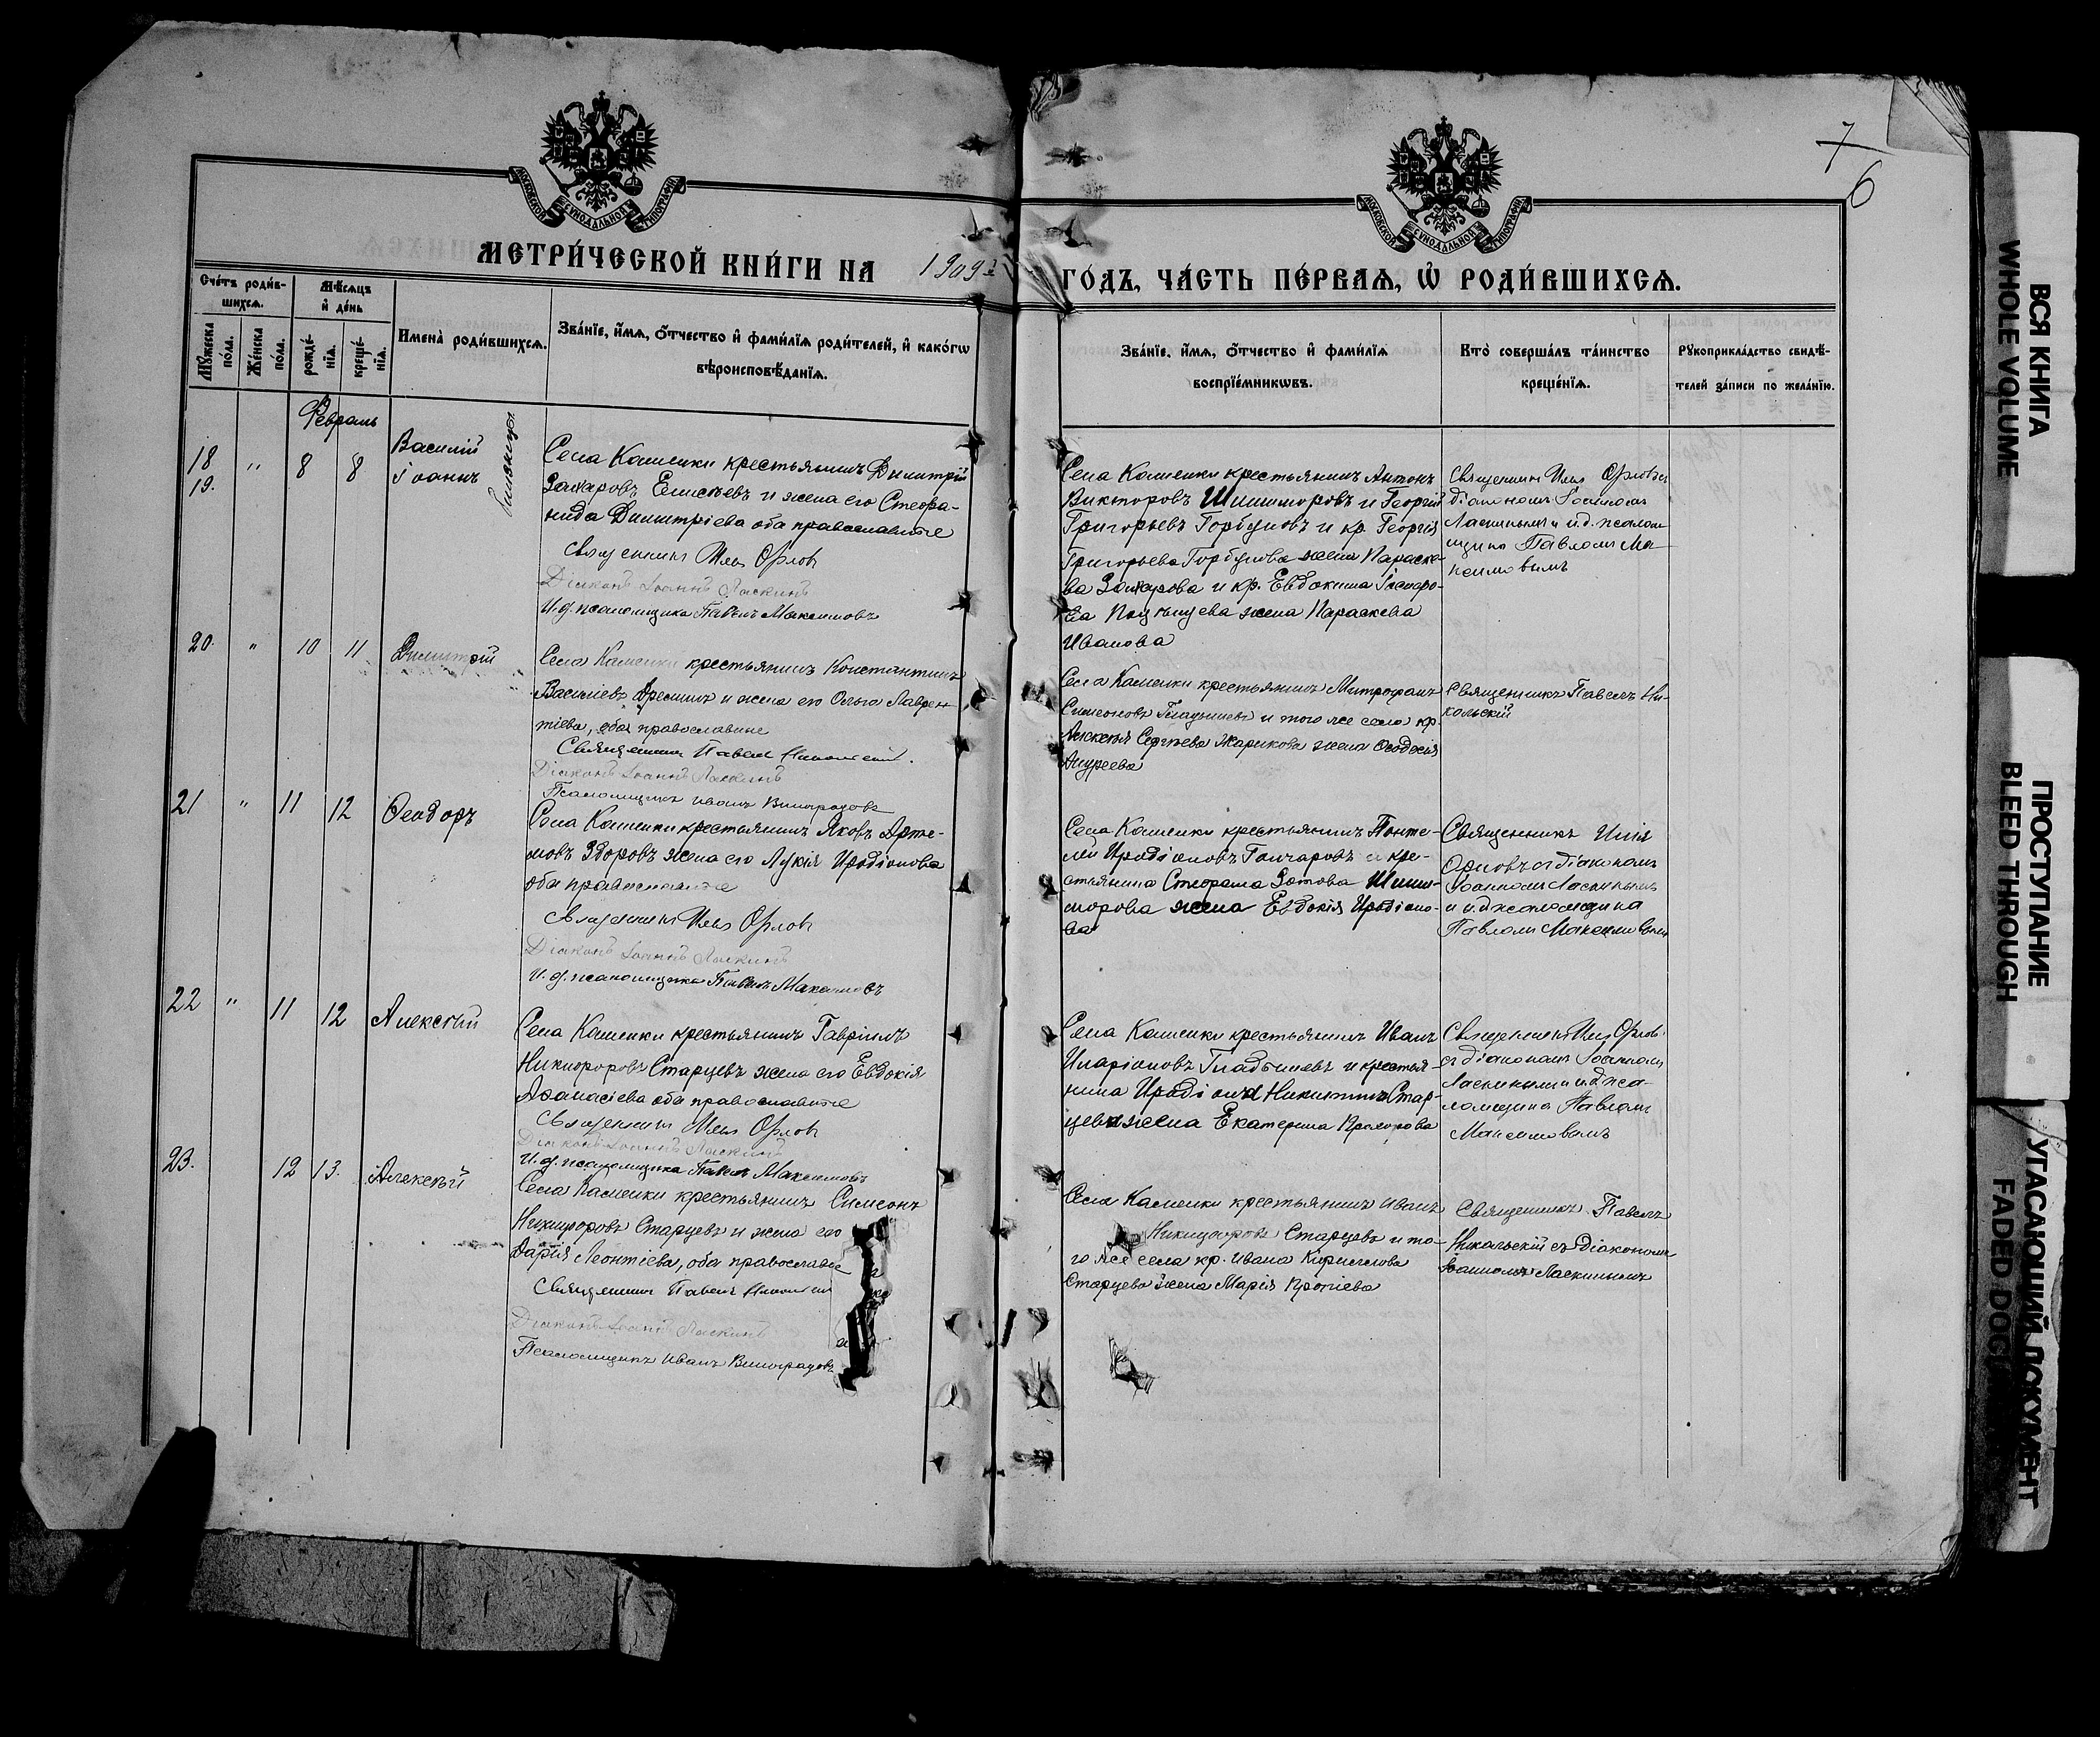 7
6
МОСКОВСКОЙ СѴНОДАЛЬНОЙ ТИПОГРАФІИ
МОСКОВСКОЙ СѴНОДАЛЬНОЙ ТИПОГРАФІИ
МЕТРИ́ЧЕСКОЙ КНИ́ГИ НА 1909 ГО́ДЪ, ЧА́СТЬ ПЕ́РВАѦ, Ѡ҆ РОДИ́ВШИХСѦ.
Сче́тъ роди́в-
шихсѧ.
Мѣ́сѧцъ
и҆ де́нь
Мꙋ́жеска по́ла.
Же́нска по́ла.
рожде́-нїѧ.
креще́-нїѧ.
Имена̀ роди́вшихсѧ.
Зва́нїе, и҆́мѧ, ѻ҆́тчество и҆ фами́лїѧ роди́телей, и҆ како́гѡ
вѣроисповѣ́данїѧ.
Зва́нїе, и҆́мѧ, ѻ҆́тчество и҆ фами́лїѧ
воспрїе́мникѡвъ.
Кто̀ соверша́лъ та́инство
креще́нїѧ.
Рꙋкоприкла́дство свидѣ́-
телей за́писи по жела́нїю.
Февраль
18 " 8 8 Василій
19. Іоаннъ
близнецы
Села Каменки крестьянинъ Димитрій
Захаровъ Елисѣевъ и жена его Стефа-
нида Димитріева оба православные
Священникъ Илья Орловъ
Діаконъ Іоаннъ Ласкинъ
И.д. псаломщика Павелъ Максимовъ
Села Каменки крестьянинъ Антонъ
Викторовъ Шишморовъ и Георгій
Григорьевъ Горбуновъ и кр. Георгія
Григорьева Горбунова жена Параске-
ва Захарова и кр. Евдокима
жена Параскева
Иванова
Священникъ Илья Орловъ съ
діакономъ Іоанномъ
Ласкинымъ и и.д. псалом-
щика Павломъ Ма-
ксимовымъ
20. " 10 11 Димитрій
Села Каменки крестьянинъ Константинъ
Васильевъ и жена его Ольга Лаврен-
тіева, оба православные
Священникъ Павелъ Никольскій.
Діаконъ Іоаннъ Ласкинъ
Псаломщикъ Иванъ Виноградовъ
Села Каменки крестьянинъ Митрофанъ
Симеоновъ Гладышевъ и того же села кр.
Алексѣя Сергѣева Жарикова жена Ѳеодосія
Андреева
Священникъ Павелъ Ни-
кольскій
21 " 11 12 Ѳеодоръ
Села Каменки крестьянинъ Яковъ Арте-
мовъ Здоровъ жена его Лукія Иродіонова
оба православные
Священникъ Илья Орловъ
Діаконъ Іоаннъ Ласкинъ
И.д. псаломщика Павелъ Максимовъ
Села Каменки крестьянинъ Панте-
лей Иродіоновъ Гончаровъ и кре-
стьянина Стефана Зотова Шиш-
морова жена Евдокія Иродіоно-
ва
Священникъ Илія
Орловъ съ діакономъ
Іоанномъ Ласкинымъ
и и.д. псаломщика
Павломъ Максимовымъ
22 " 11 12 Алексѣй
Села Каменки крестьянинъ Гавріилъ
Никифоровъ Старцевъ жена его Евдокія
Аѳанасіева оба православные
Священникъ Илья Орловъ
Діаконъ Іоаннъ Ласкинъ
И.д. псаломщика Павелъ Максимовъ
Села Каменки крестьянинъ Иванъ
Иларіоновъ Гладышевъ и крестья-
нина Иродіона Никитина Стар-
цева жена Екатерина Прохорова
Священникъ Илья Орловъ
съ діакономъ Іоанномъ
Ласкинымъ и и.д. пса-
ломщика Павломъ
Максимовымъ
23. 12 13. Алексѣй
Села Каменки крестьянинъ Симеонъ
Никифоровъ Старцевъ и жена его
Дарія Леонтіева, оба православные
Священникъ Павелъ Никольскій
Діаконъ Іоаннъ Ласкинъ
Псаломщикъ Иванъ Виноградовъ
Села Каменки крестьянинъ Иванъ
Никифоровъ Старцевъ и то-
го же села кр. Ивана Кириллова
Старцева жена Марія
Священникъ Павелъ
Никольскій съ діакономъ
Іоанномъ Ласкинымъ
ВСЯ КНИГА
WHOLE VOLUME
ПРОСТУПАНИЕ
BLEED THROUGH
УГАСАЮЩИЙ ДОКУМЕНТ
FADED DOC